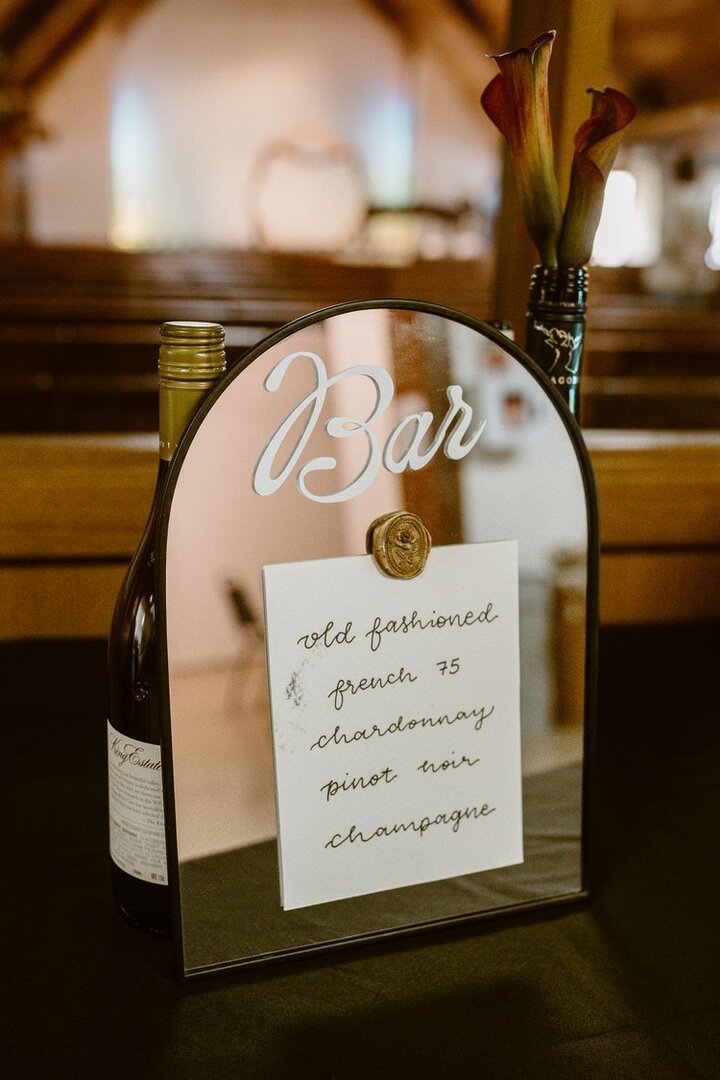 Bar
old fashioned
french 75
chardonnay
pinot noir
champagne
King Estate